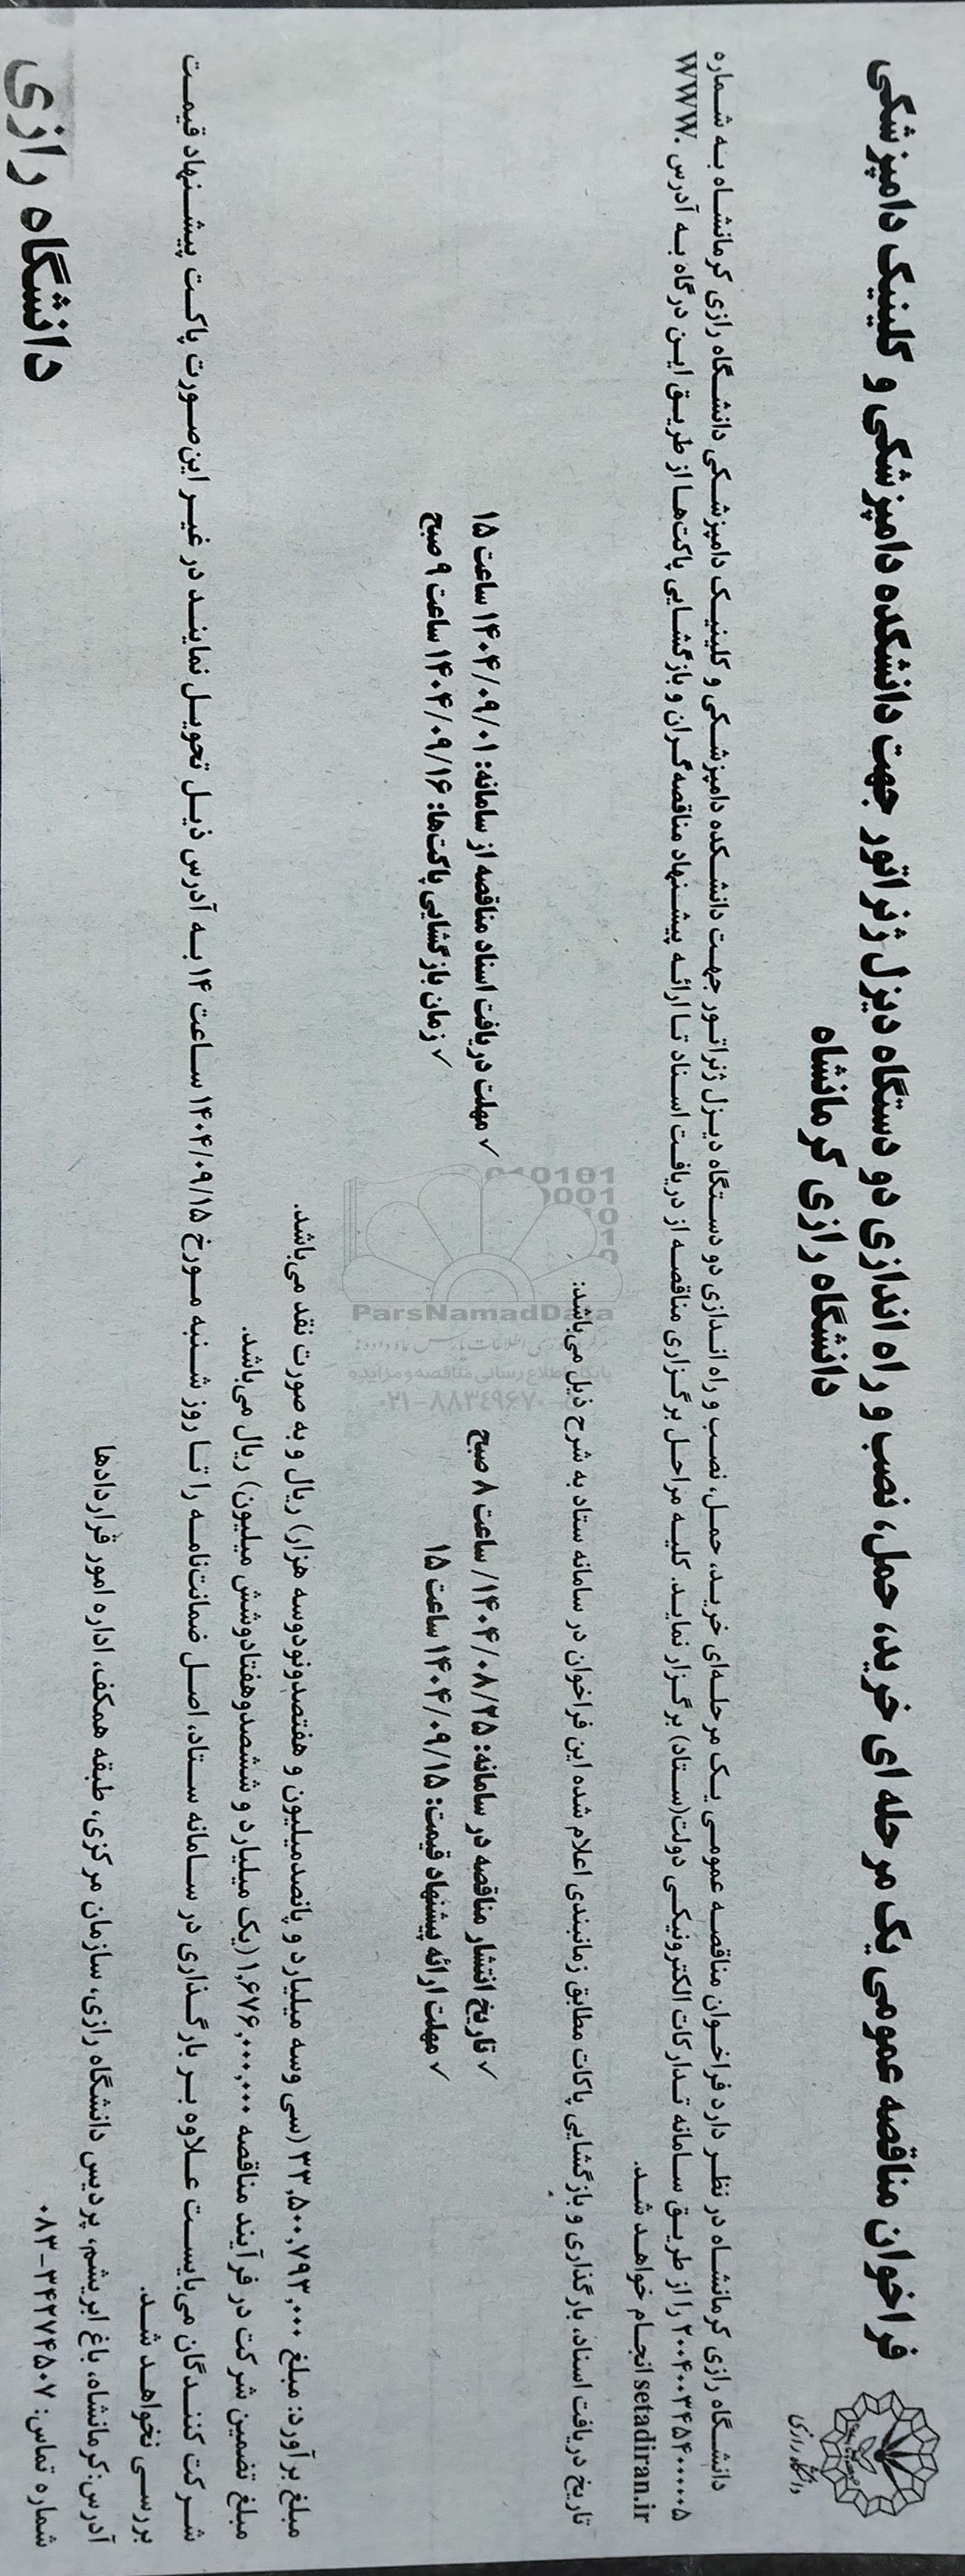 فراخوان مناقصه عمومی یک مرحله ای خرید، حمل، نصب و راه اندازی دو دستگاه دیزل ژنراتور جهت دانشکده دامپزشکی و کلینیک دامپزشکی
دانشگاه رازی کرمانشاه
دانشگاه رازی
دانشگاه رازی کرمانشاه در نظر دارد فراخوان مناقصه عمومی یک مرحله‌ای خرید، حمل، نصب و راه اندازی دو دستگاه دیزل ژنراتور جهت دانشکده دامپزشکی و کلینیک دامپزشکی دانشگاه رازی کرمانشاه به شماره
۲۰۰۴۰۰۳۴۵۴۰۰۰۰۰۵ را از طریق سامانه تدارکات الکترونیکی دولت(ستاد) برگزار نماید. کلیه مراحل برگزاری مناقصه از دریافت اسناد تا ارائه پیشنهاد مناقصه‌گران و بازگشایی پاکت‌ها از طریق این درگاه به آدرس www.
setadiran.ir انجام خواهد شد.
تاریخ دریافت اسناد، بارگذاری و بازگشایی پاکات مطابق زمانبندی اعلام شده این فراخوان در سامانه ستاد به شرح ذیل می‌باشد:
✓ تاریخ انتشار مناقصه در سامانه: ۱۴۰۴/۰۸/۲۵/ ساعت ۸ صبح
✓ مهلت دریافت اسناد مناقصه از سامانه: ۱۴۰۴/۰۹/۰۱ ساعت ۱۵
✓ مهلت ارائه پیشنهاد قیمت: ۱۴۰۴/۰۹/۱۵ ساعت ۱۵
✓ زمان بازگشایی پاکت‌ها: ۱۴۰۴/۰۹/۱۶ ساعت ۹ صبح
مبلغ برآورد: مبلغ ۳۳,۵۰۰,۷۹۳,۰۰۰ (سی وسه میلیارد و پانصدمیلیون و هفتصدونودوسه هزار) ریال و به صورت نقد می‌باشد.
مبلغ تضمین شرکت در فرآیند مناقصه ۱,۶۷۶,۰۰۰,۰۰۰ (یک میلیارد و ششصدوهفتادوشش میلیون) ریال می‌باشد.
شرکت کنندگان می‌بایست علاوه بر بارگذاری در سامانه ستاد، اصل ضمانت‌نامه را تا روز شنبه مورخ ۱۴۰۴/۰۹/۱۵ ساعت ۱۴ به آدرس ذیل تحویل نمایند در غیر این‌صورت پاکت پیشنهاد قیمت
بررسی نخواهد شد.
آدرس:کرمانشاه، باغ ابریشم، پردیس دانشگاه رازی، سازمان مرکزی، طبقه همکف، اداره امور قراردادها
شماره تماس: ۳۴۲۷۴۵۰۷-۰۸۳
دانشگاه رازی
ParsNamadData
پایگاه اطلاع رسانی مناقصه و مزایده
۰۲۱-۸۸۳۴۹۶۷۰-۵